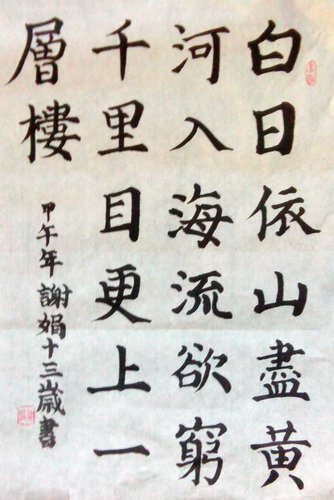 白日依山盡黃
河入海流欲窮
千里目更上一
層樓
甲午年謝娟十三歲書